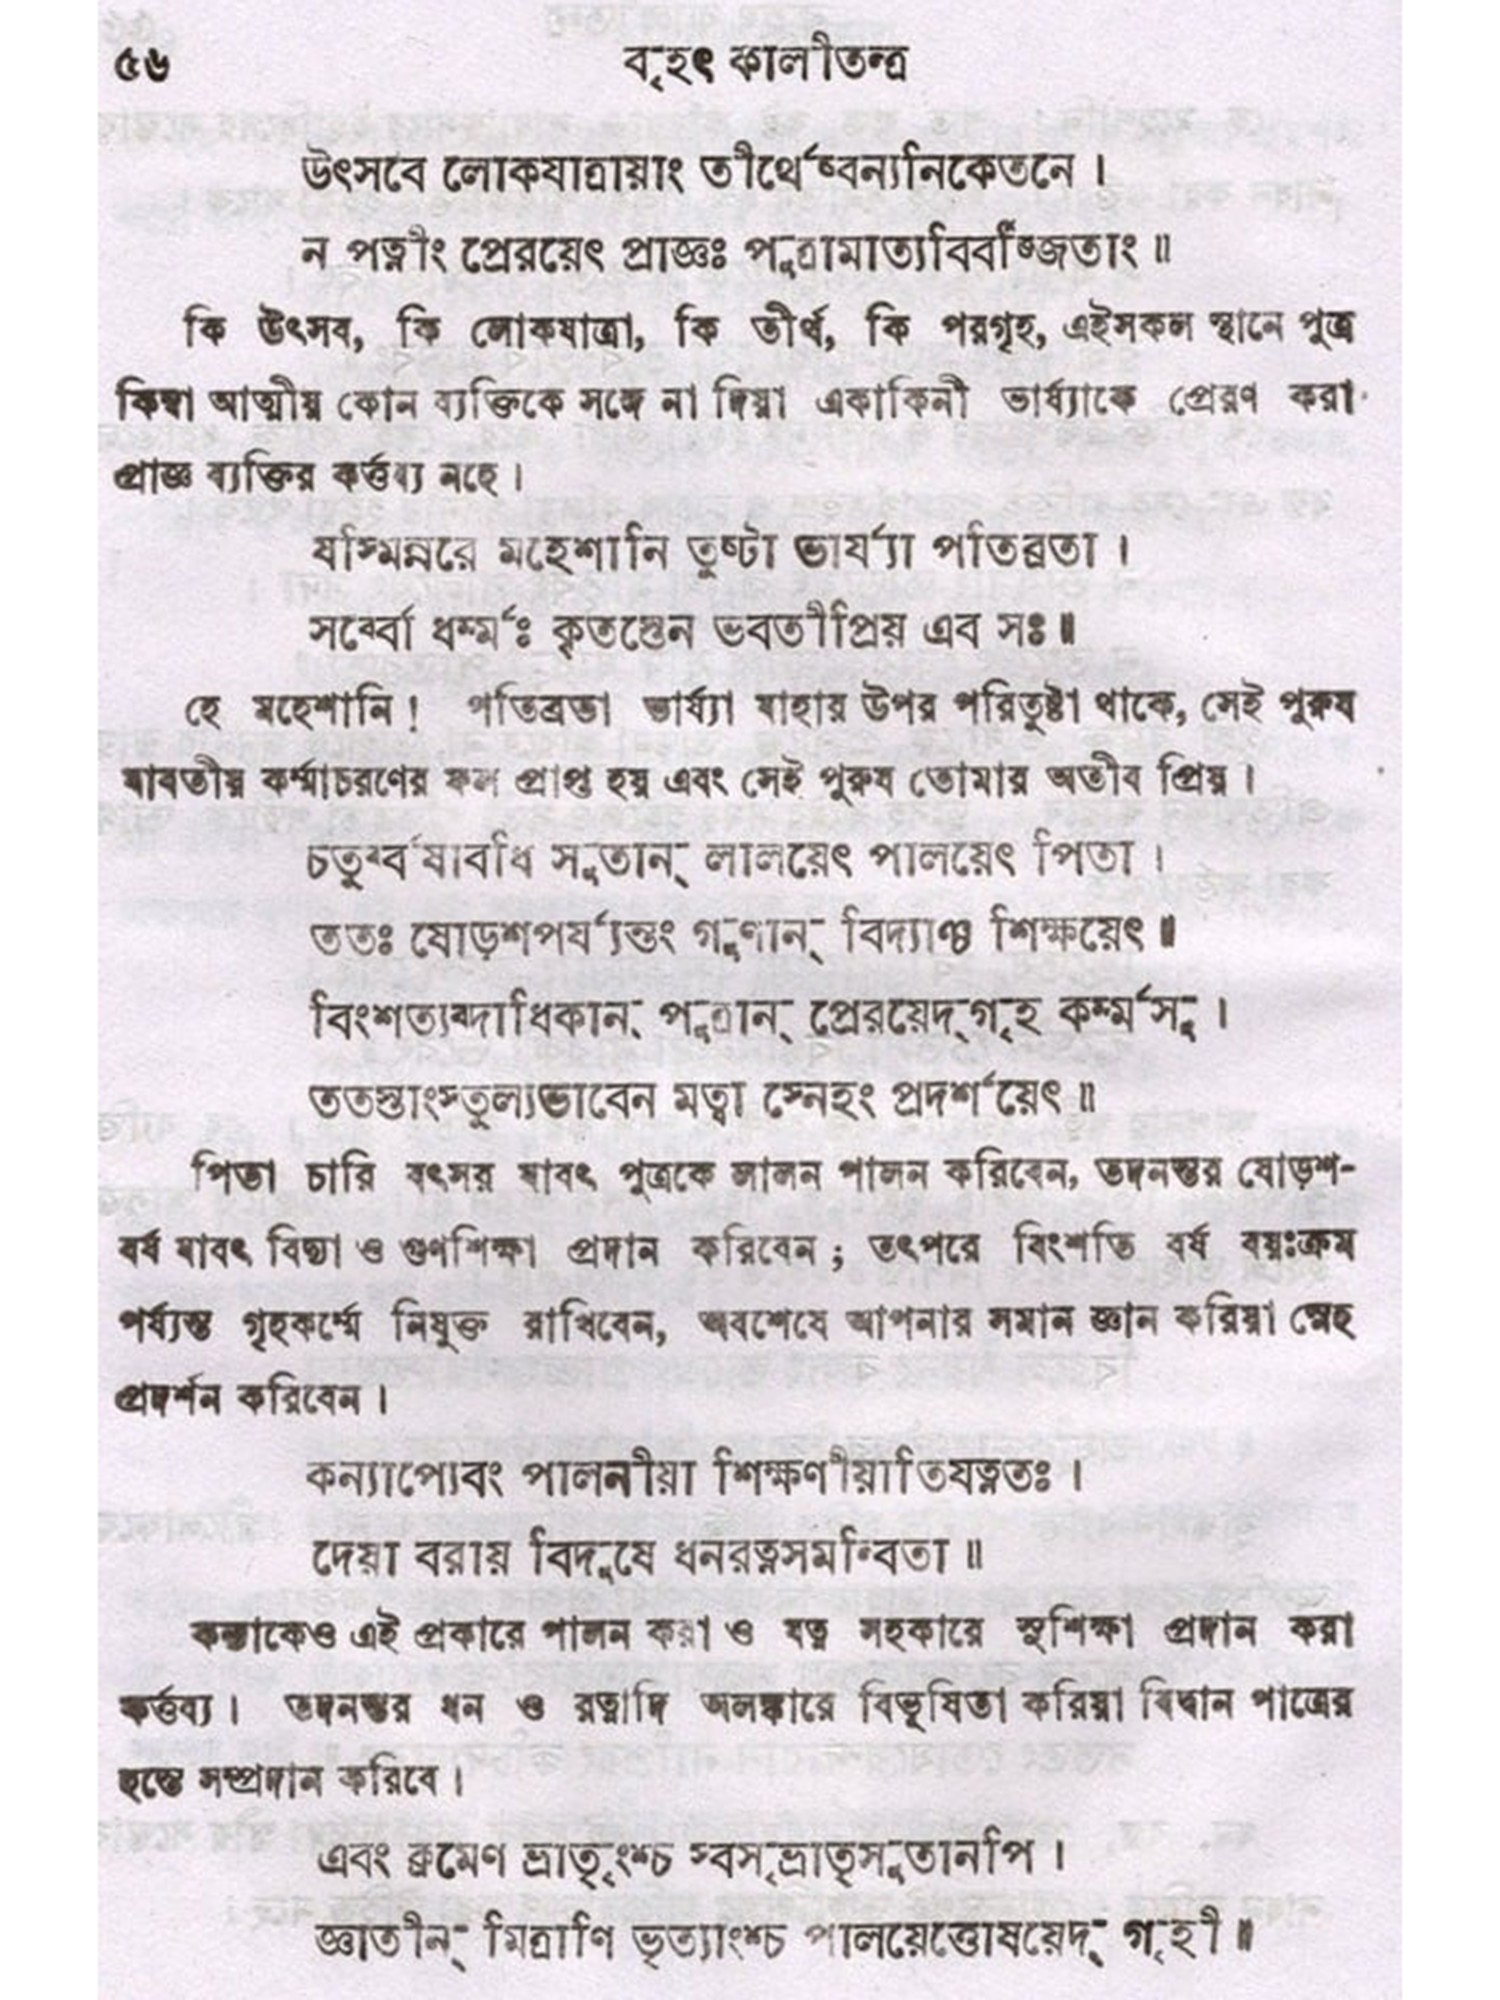 ৫৬
বৃহৎ কালীতন্ত্র
উৎসবে লোকযাত্রায়াং তীর্থেষ্বন্যনিকেতনে ।
ন পত্নীং প্রেরয়েৎ প্রাজ্ঞঃ পুত্রামাত্যবিবর্জ্জিতাং ॥
কি উৎসব, কি লোকযাত্রা, কি তীর্থ, কি পরগৃহ, এইসকল স্থানে পুত্র
কিম্বা আত্মীয় কোন ব্যক্তিকে সঙ্গে না দিয়া একাকিনী ভার্য্যাকে প্রেরণ করা
প্রাজ্ঞ ব্যক্তির কর্ত্তব্য নহে ।
যস্মিন্নরে মহেশানি তুষ্টা ভার্য্যা পতিব্রতা ।
সর্ব্বো ধর্ম্মঃ কৃতস্তেন ভবতীপ্রিয় এব সঃ ॥
হে মহেশানি ! পতিব্রতা ভার্য্যা যাহার উপর পরিতুষ্টা থাকে, সেই পুরুষ
যাবতীয় কর্ম্মাচরণের ফল প্রাপ্ত হয় এবং সেই পুরুষ তোমার অতীব প্রিয় ।
চতুর্ব্বর্ষাবধি সুতান্ লালয়েৎ পালয়েৎ পিতা ।
ততঃ ষোড়শপর্য্যন্তং গুণান্ বিদ্যাঞ্চ শিক্ষয়েৎ ॥
বিংশত্যব্দাধিকান্ পুত্রান্ প্রেরয়েদ্‌গৃহ কর্ম্মসু ।
ততস্তাংস্তুল্যভাবেন মত্বা স্নেহং প্রদর্শয়েৎ ॥
পিতা চারি বৎসর যাবৎ পুত্রকে লালন পালন করিবেন, তদনন্তর ষোড়শ-
বর্ষ যাবৎ বিদ্যা ও গুণশিক্ষা প্রদান করিবেন ; তৎপরে বিংশতি বর্ষ বয়ঃক্রম
পর্য্যন্ত গৃহকর্ম্মে নিযুক্ত রাখিবেন, অবশেষে আপনার সমান জ্ঞান করিয়া স্নেহ
প্রদর্শন করিবেন ।
কন্যাপ্যেবং পালনীয়া শিক্ষণীয়াতিযত্নতঃ ।
দেয়া বরায় বিদুষে ধনরত্নসমন্বিতা ॥
কন্যাকেও এই প্রকারে পালন করা ও যত্ন সহকারে সুশিক্ষা প্রদান করা
কর্ত্তব্য । তদনন্তর ধন ও রত্নাদি অলঙ্কারে বিভূষিতা করিয়া বিদ্বান পাত্রের
হস্তে সম্প্রদান করিবে ।
এবং ক্রমেণ ভ্রাতৃংশ্চ স্বসৃভ্রাতৃসুতানপি ।
জ্ঞাতীন্ মিত্রাণি ভৃত্যাংশ্চ পালয়েত্তোষয়েদ্ গৃহী ॥